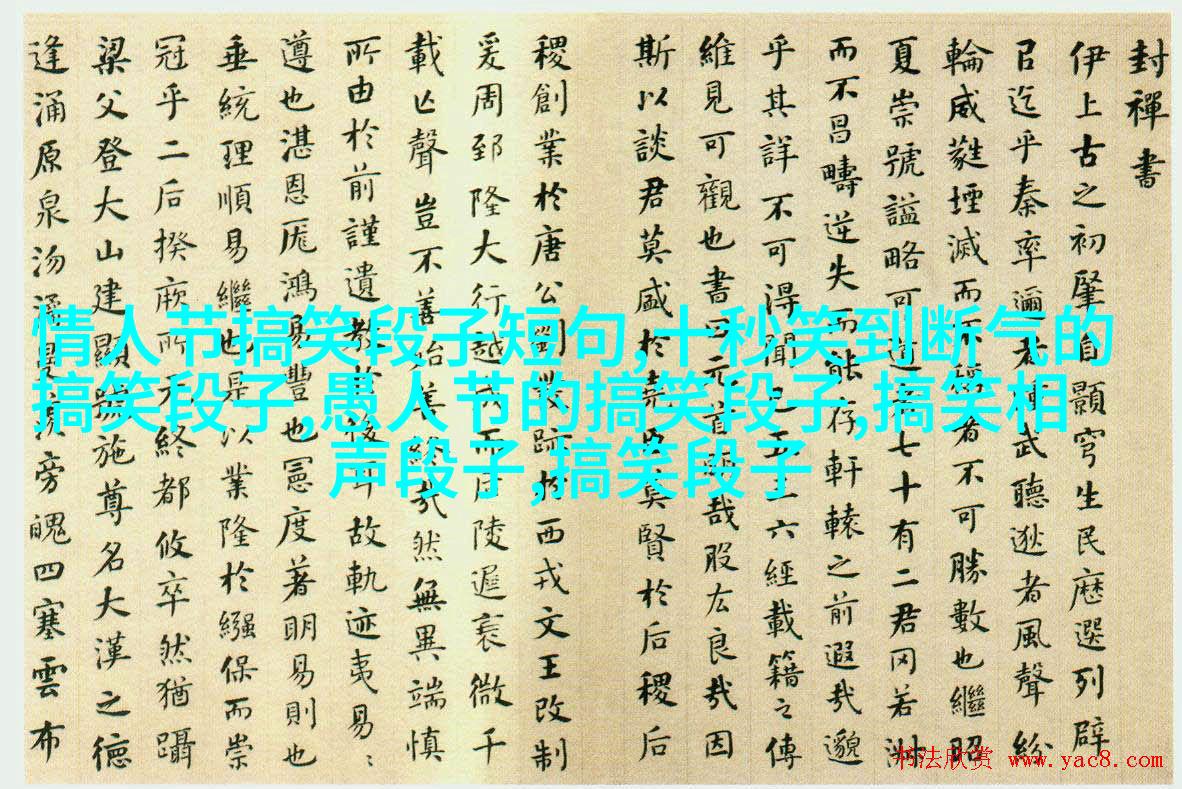 封禪書
伊上古之初肇自顥穹生民歷選列辟
㠯迄乎秦率邇者踵武聽逖者風聲紛
輪威蕤堙滅而不稱者不可勝數也繼昭
夏崇號謚略可道者七十有二君罔若淑
而不昌疇逆失而能存軒轅之前遐哉邈
乎其詳不可得聞已五三六經載籍之傳
維見可觀也書曰元首明哉股肱良哉因
斯以談君莫盛於堯臣莫賢於后稷后
稷創業於唐公劉發跡於西戎文王改制
爰周郅隆大行越成而后陵遲衰微千
載亡聲豈不善始善終哉然無異端慎
所由於前謹遺教於後耳故軌迹夷易〻
遵也湛恩厖鴻易豐也憲度著明易則也
垂統理順易繼也是以業隆於繈保而崇
冠乎二后揆厥所元終都攸卒然猶躡
梁父登大山建顯號施尊名大漢之德
逢涌原泉沕潏曼羨旁魄四塞雲布
情人节搞笑段子短句,十秒笑到断气的
搞笑段子,愚人节的搞笑段子,搞笑相
声段子,搞笑段子
书法欣赏 www.yac8.com